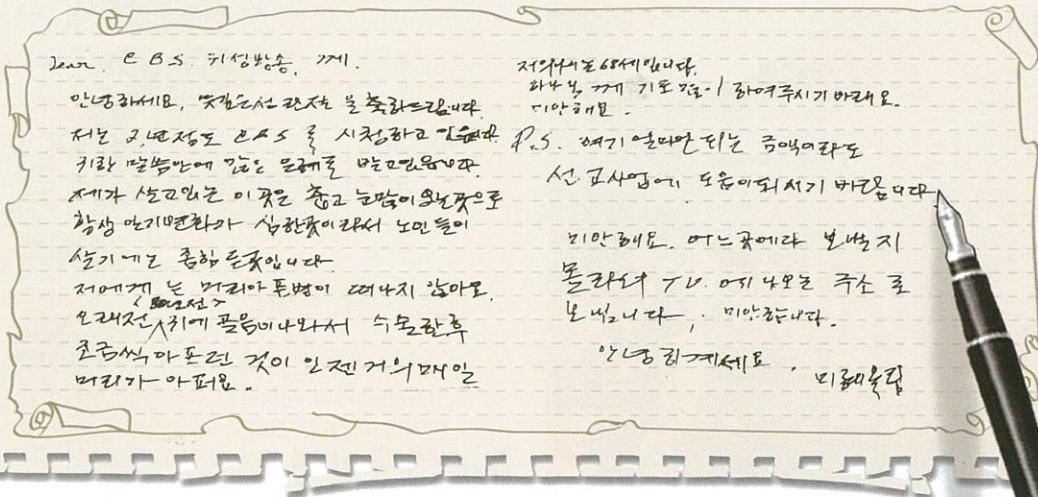 Dear. C B S 위성방송, 께.
안녕하세요, 뜻깊은선 관전을 축하드립니다.
저는 2년정도 CBS 를 시청하고 있읍니다.
귀한 말씀안에 깊은 은혜를 받고있읍니다.
제가 살고있는 이 곳은 춥고 눈많이오는곳으로
항상 일기변화가 심한곳이라서 노인들이
살기에는 좀힘든곳입니다.
저에게 는 머리아픈병이 떠나지 않아요.
오래전 귀에 골음이나와서 수술한후
조금씩 아프던 것이 인젠 거의매일
머리가 아퍼요.
저의나이는 68세입니다.
하나님 께 기도 많이 하여주시기 바래요.
미안해요.
P.S. 여기 얼마안 되는 금액이라도
선교사업에 도움이되시기 바랍니다
미안해요. 어느곳에다 보낼지
몰라서 T.V. 에 나오는 주소 로
보냅니다, 미안합니다.
안녕히계세요.